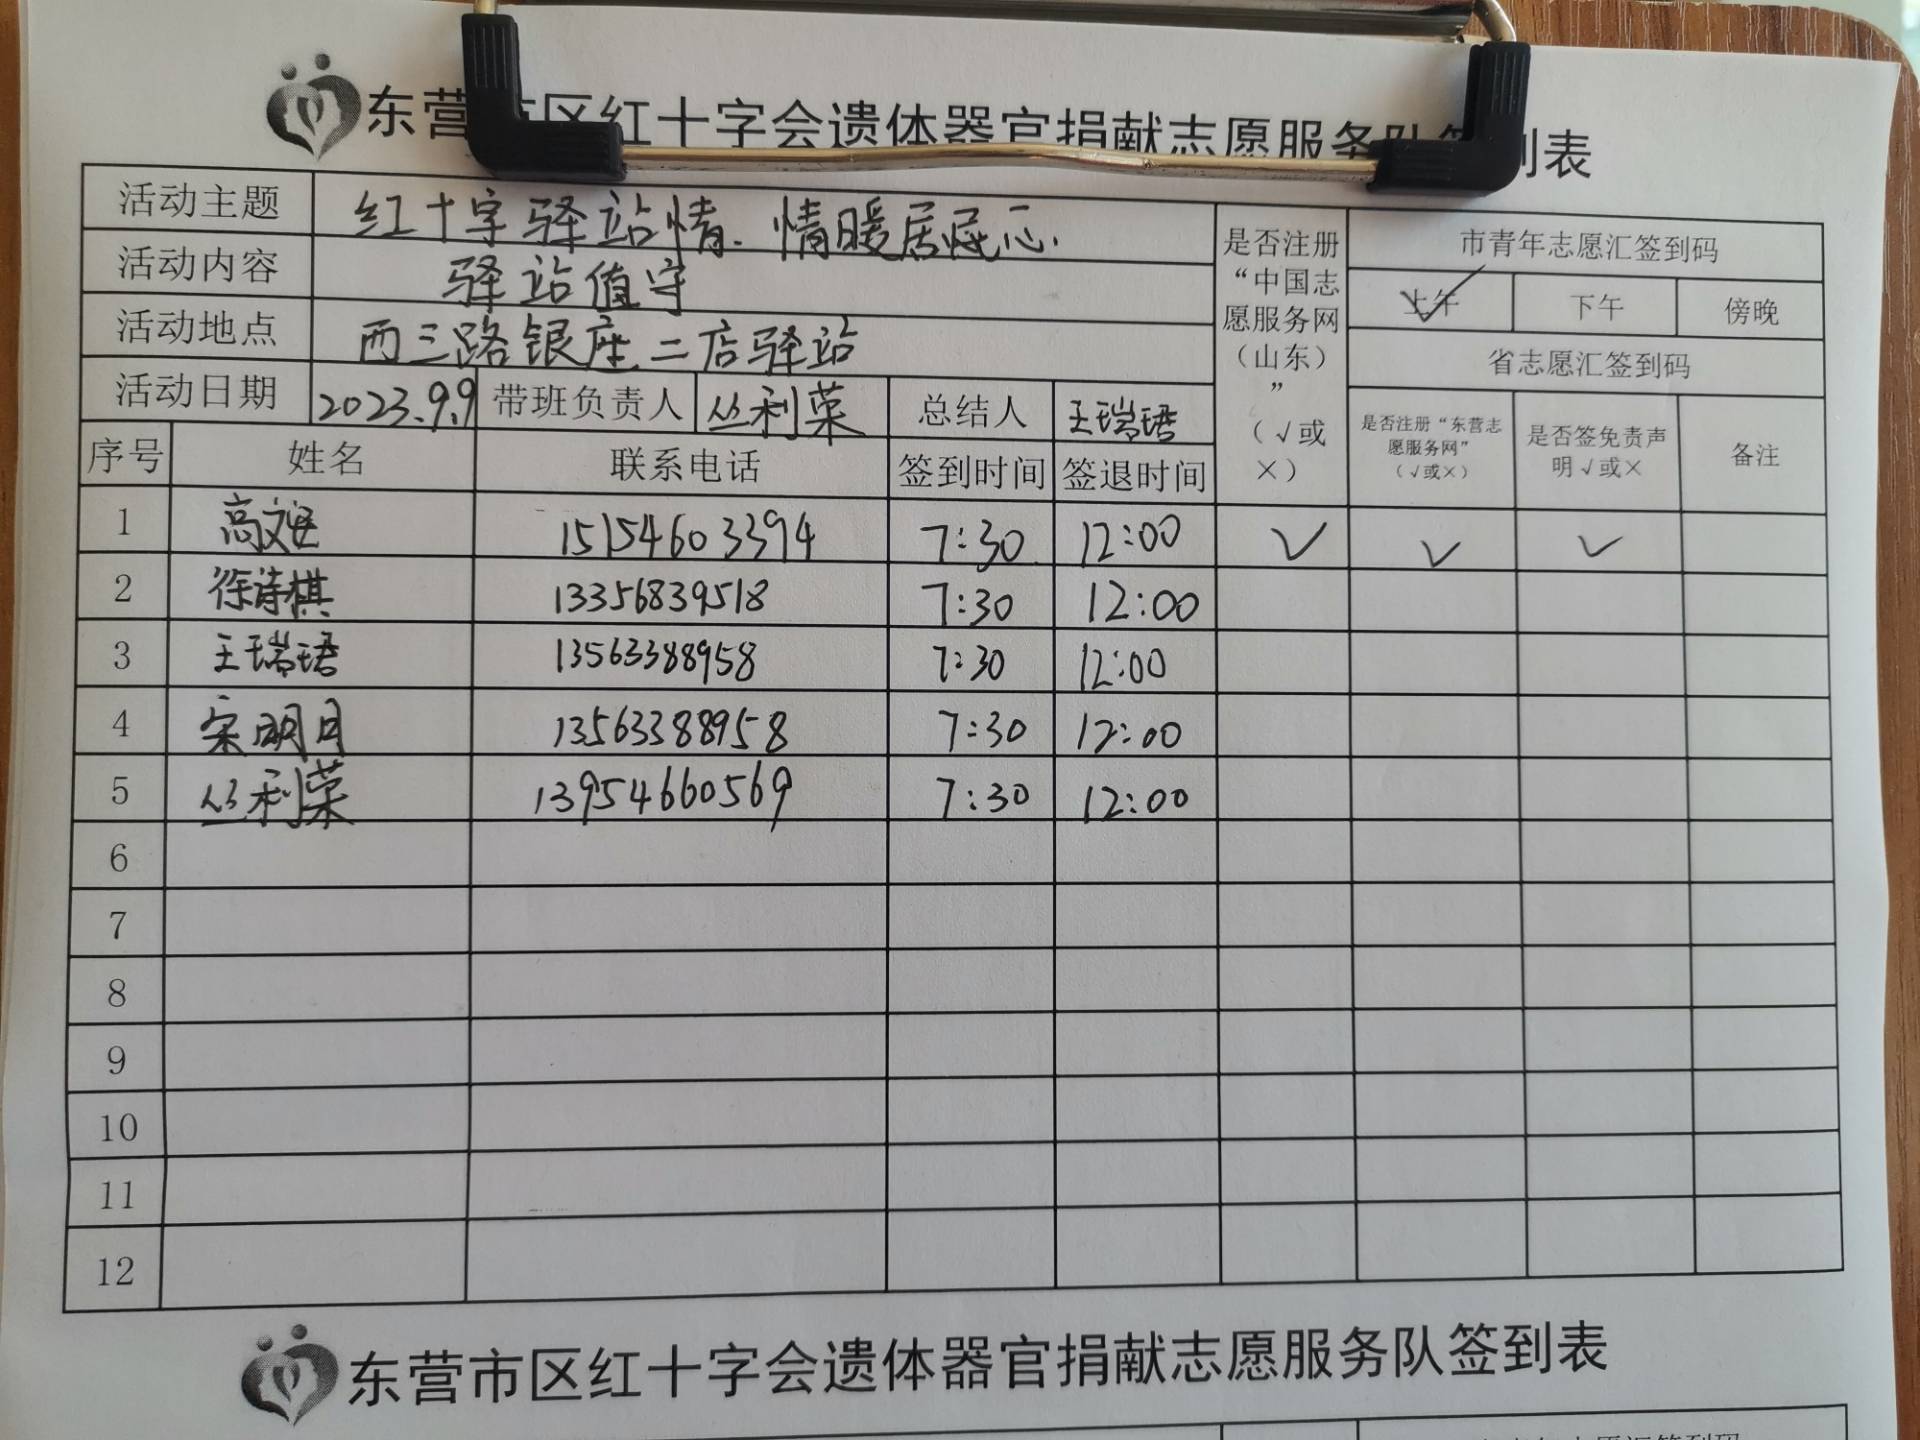 东营市区红十字会遗体器官捐献志愿服务队签到表
活动主题 红十字驿站情.情暖居民心.
活动内容 驿站值守
活动地点 西三路银座二店驿站
活动日期 2023.9.9 带班负责人 丛利荣 总结人 王瑞珺
是否注册“中国志愿服务网（山东）”（√或×）
市青年志愿汇签到码
上午 下午 傍晚
省志愿汇签到码
是否注册“东营志愿服务网”（√或×） 是否签免责声明√或× 备注
序号 姓名 联系电话 签到时间 签退时间
1 高文 15154603394 7:30 12:00 √ √ √
2 徐诗棋 13356839518 7:30 12:00
3 王瑞珺 13563388958 7:30 12:00
4 宋明月 13563388958 7:30 12:00
5 丛利荣 13954660569 7:30 12:00
6
7
8
9
10
11
12
东营市区红十字会遗体器官捐献志愿服务队签到表